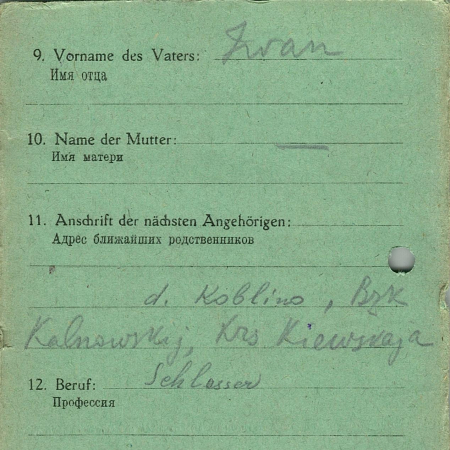 9. Vorname des Vaters: Iwan
Имя отца
10. Name der Mutter: —
Имя матери
11. Anschrift der nächsten Angehörigen:
Адрес ближайших родственников
d. Koblino, Bzk
Kalnowskij, Krs Kiewskaja
12. Beruf: Schlosser
Профессия